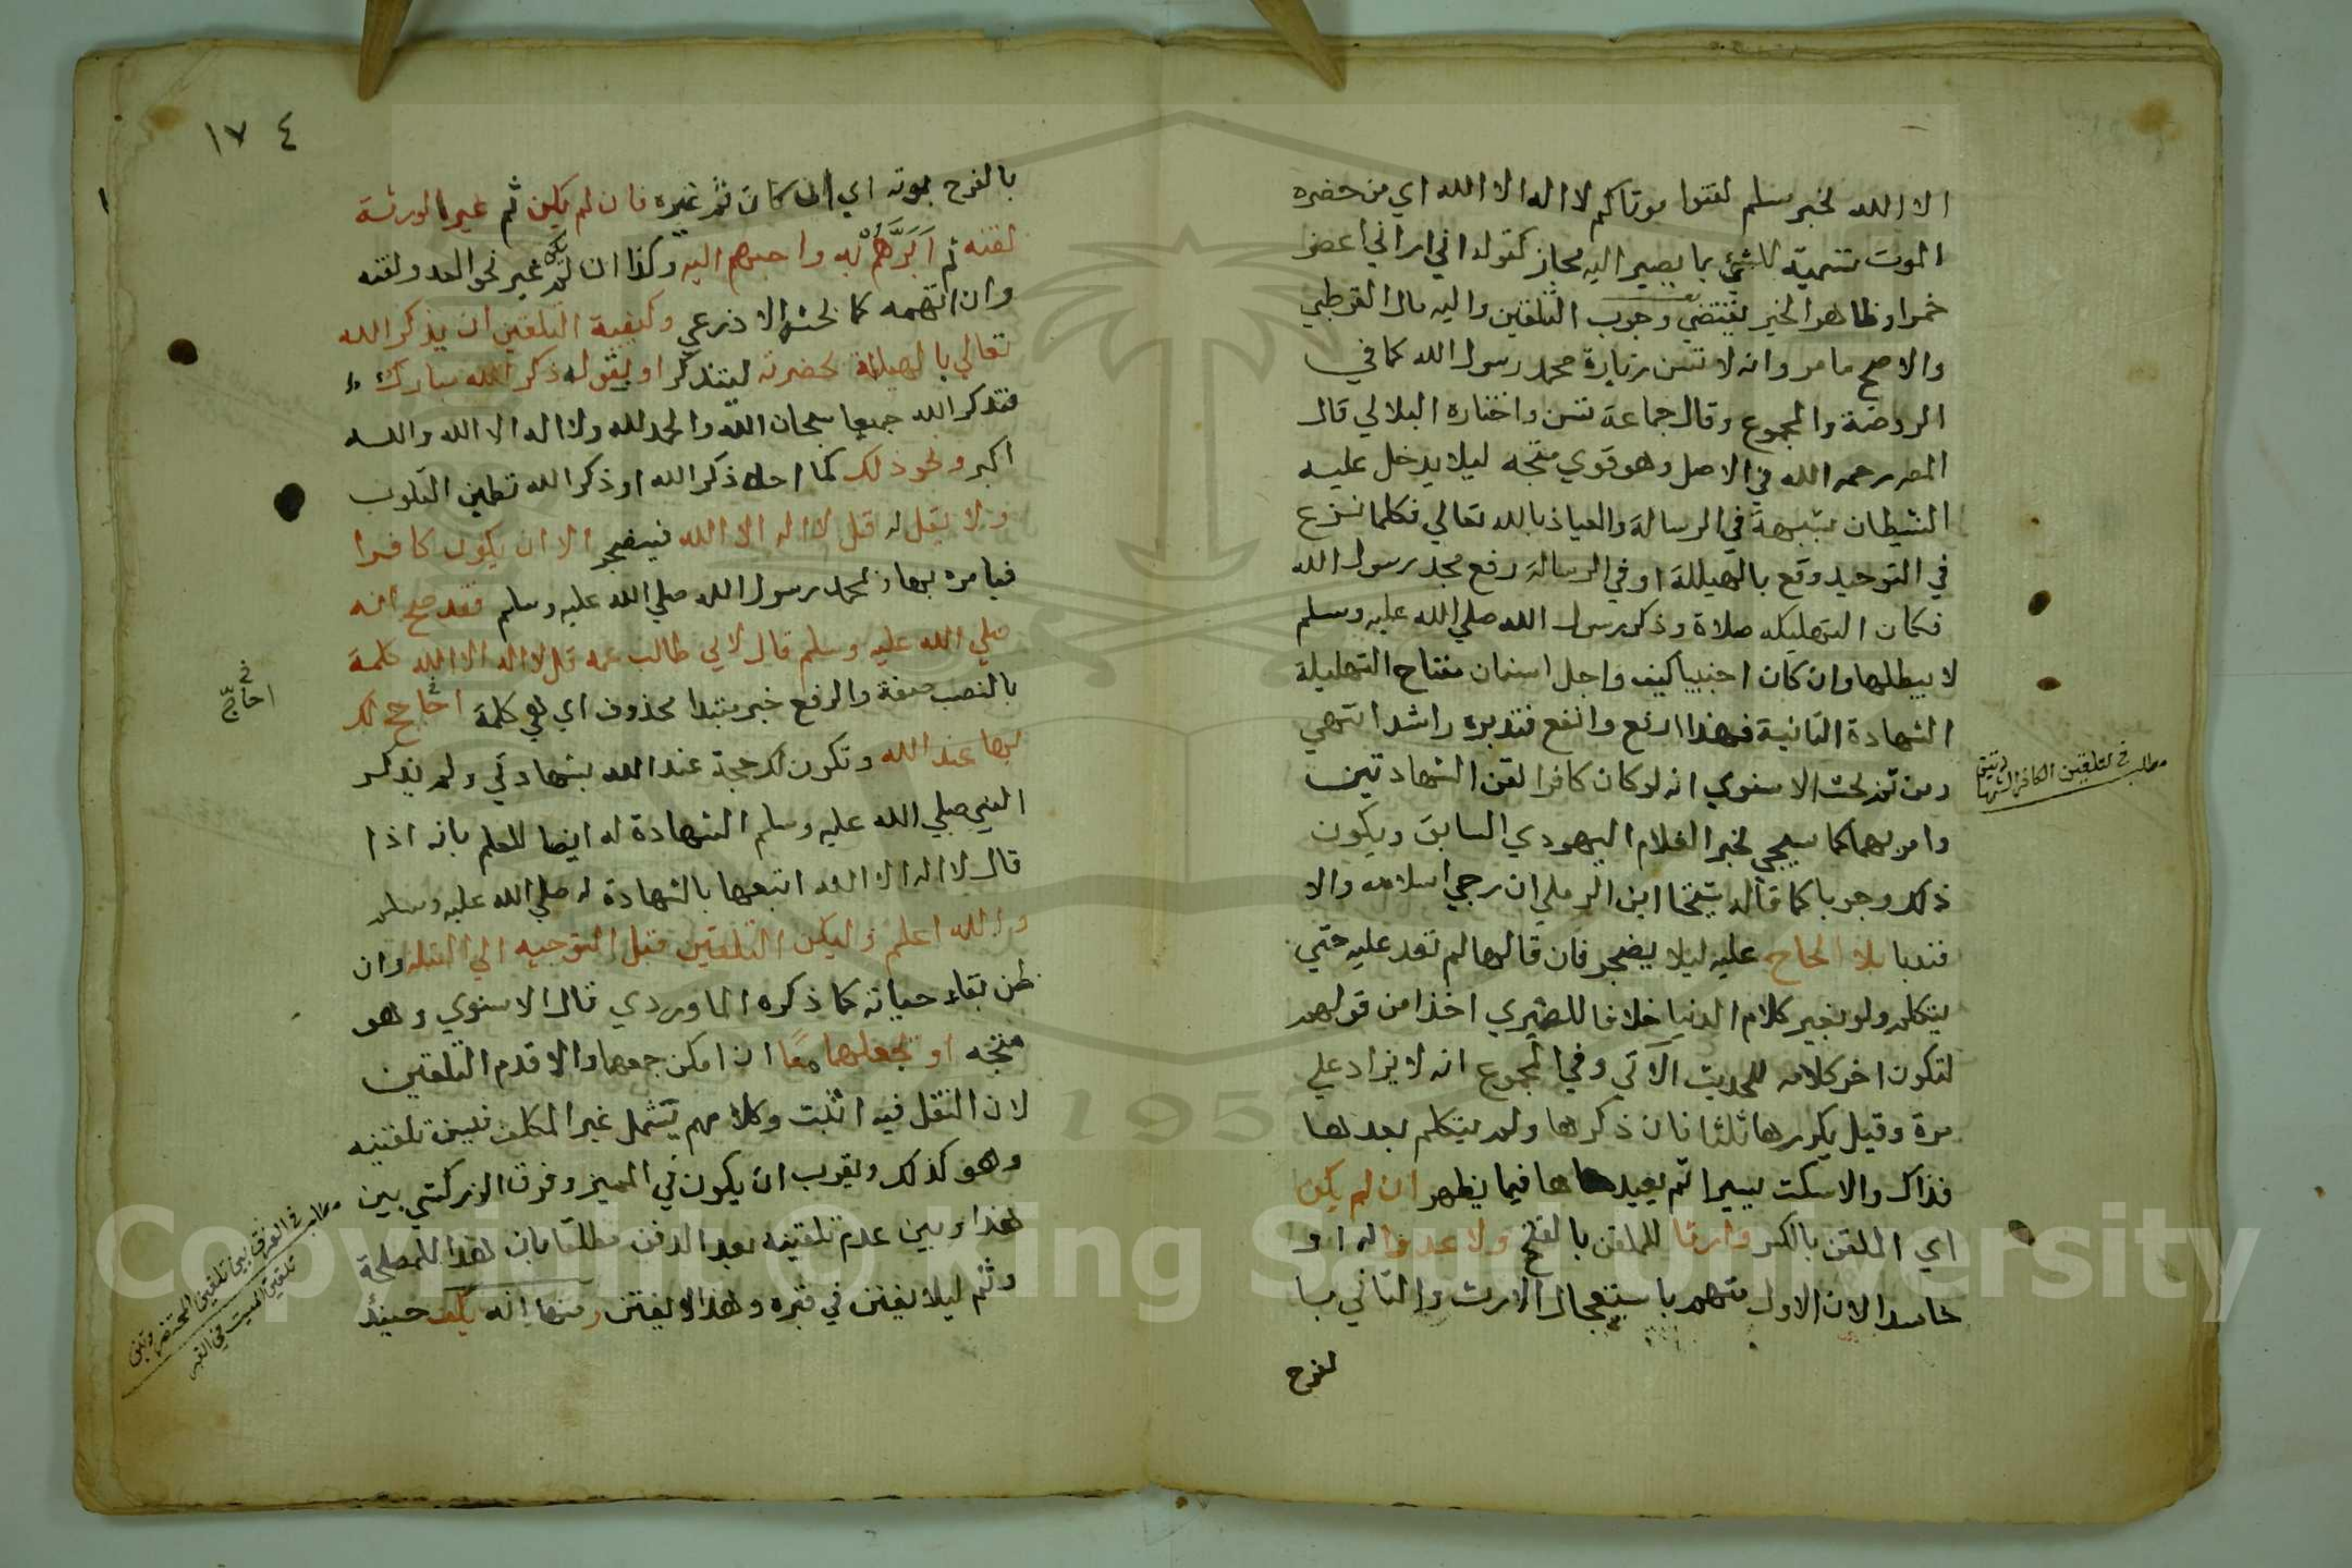 الا الله لخبر مسلم لقنوا موتاكم لا اله الا الله اي من حضره
الموت تسمية للشيء بما يصير اليه مجاز كقوله اني اراني اعصر
خمرا وظاهر الخبر يقتضي وجوب التلقين واليه مال القرطبي
والاصح ما مر وانه لا تسن زيادة محمد رسول الله كما في
الروضة والمجموع وقال جماعة تسن واختاره البلالي قال
المص رحمه الله في الاصل وهو قوي متجه ليلا يدخل عليه
الشيطان بشبهة في الرسالة والعياذ بالله تعالي فكلما نزع
في التوحيد وقع بالهيللة او في الرسالة دفع محمد رسول الله
فكان صلاة وذكر رسول الله صلي الله عليه وسلم
لا يبطلها وان كان اجنبيا كيف واجل اسنان مفتاح التهليلة
الشهادة الثانية فهذا ارفع وانفع فتدبره راشدا انتهي
ومن ثم بحث الاسنوي انه لو كان كافرا لقن الشهادتين
وامر بهما كما سيجي لخبر الغلام اليهودي السابق ويكون
ذلك وجوبا كما قاله شيخنا ابن الرملي ان رجي اسلامه والا
فندبا بلا الحاح عليه ليلا يضجر فان قالها لم تعد عليه حتي
يتكلم ولو بغير كلام الدنيا خلافا للصيمري اخذا من قولهم
لتكون اخر كلامه للحديث الآتي وفي المجموع انه لا يزاد علي
مرة وقيل يكررها ثلثا فان ذكرها ولم يتكلم بعدها
فذاك والا سكت يسيرا ثم يعيدها فيما يظهر ان لم يكن
اي الملقن بالكسر وارثا للملقن بالفتح ولا عدوا له او
حاسدا لان الاول متهم باستعجال الارث والثاني بسا
لفرح
مطلب في تلقين الكافر الشهادتين
١٧٤
بالفرح بموته اي ان كان ثم غيره فان لم يكن ثم غير الورثة
لقنه ثم ابرهم به واحبهم اليه وكذا ان لم يكن غير نحو العدو لقنه
وان اتهمه كما بحثه الاذرعي وكيفية التلقين ان يذكر الله
تعالي بالهيللة بحضرته ليتذكر او يقول ذكر الله مبارك
فنذكر الله جميعا سبحان الله والحمد لله ولا اله الا الله والله
اكبر ونحو ذلك كما ذكر الله او ذكر الله تطمين القلوب
ولا يقل له قل لا اله الا الله فيضجر الا ان يكون كافرا
فيامره بها وبمحمد رسول الله صلي الله عليه وسلم فقد صح انه
صلي الله عليه وسلم قال لابي طالب عمه قل لا اله الا الله كلمة
بالنصب صفة والرفع خبر مبتدا محذوف اي هي كلمة احاجج لك
بها عند الله وتكون لك حجة عند الله بشهادتي ولم يذكر
النبي صلي الله عليه وسلم الشهادة له ايضا للعلم بانه اذا
قال لا اله الا الله اتبعها بالشهادة له صلي الله عليه وسلم
والله اعلم وليكن التلقين قبل التوجيه الي القبلة وان
ظن بقاء حياته كما ذكره الماوردي قال الاسنوي وهو
متجه او تجعلهما معا ان امكن جمعهما والا قدم التلقين
لان النقل فيه اثبت وكلامهم يشمل غير المكلف فيسن تلقينه
وهو كذلك ويقرب ان يكون في المميز وفرق الزركشي بين
هذا وبين عدم تلقينه بعد الدفن مطلقا بان هذا للمصلحة
وثم ليلا يفتن في قبره وهذا لا يفتن ومنها انه يكف حينئذ
احاج
مطلب في الفرق بين تلقين المحتضر وبين
تلقين الميت في القبر
Copyright © King Saud University
195